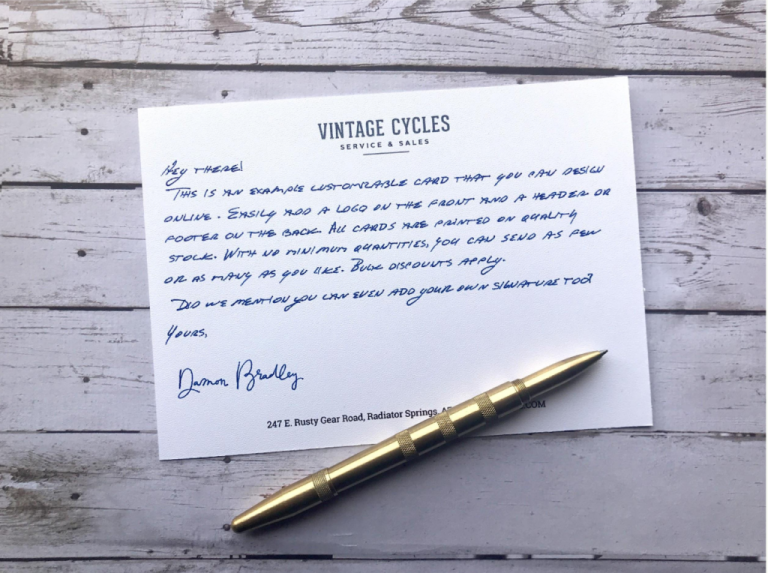 VINTAGE CYCLES
SERVICE & SALES
HEY THERE!
THIS IS AN EXAMPLE CUSTOMIZABLE CARD THAT YOU CAN DESIGN
ONLINE. EASILY ADD A LOGO ON THE FRONT AND A HEADER OR
FOOTER ON THE BACK. ALL CARDS ARE PRINTED ON QUALITY
STOCK. WITH NO MINIMUM QUANTITIES, YOU CAN SEND AS FEW
OR AS MANY AS YOU LIKE. BULK DISCOUNTS APPLY.
DID WE MENTION YOU CAN EVEN ADD YOUR OWN SIGNATURE TOO?
YOURS,
Damon Bradley
247 E. Rusty Gear Road, Radiator Springs, .COM